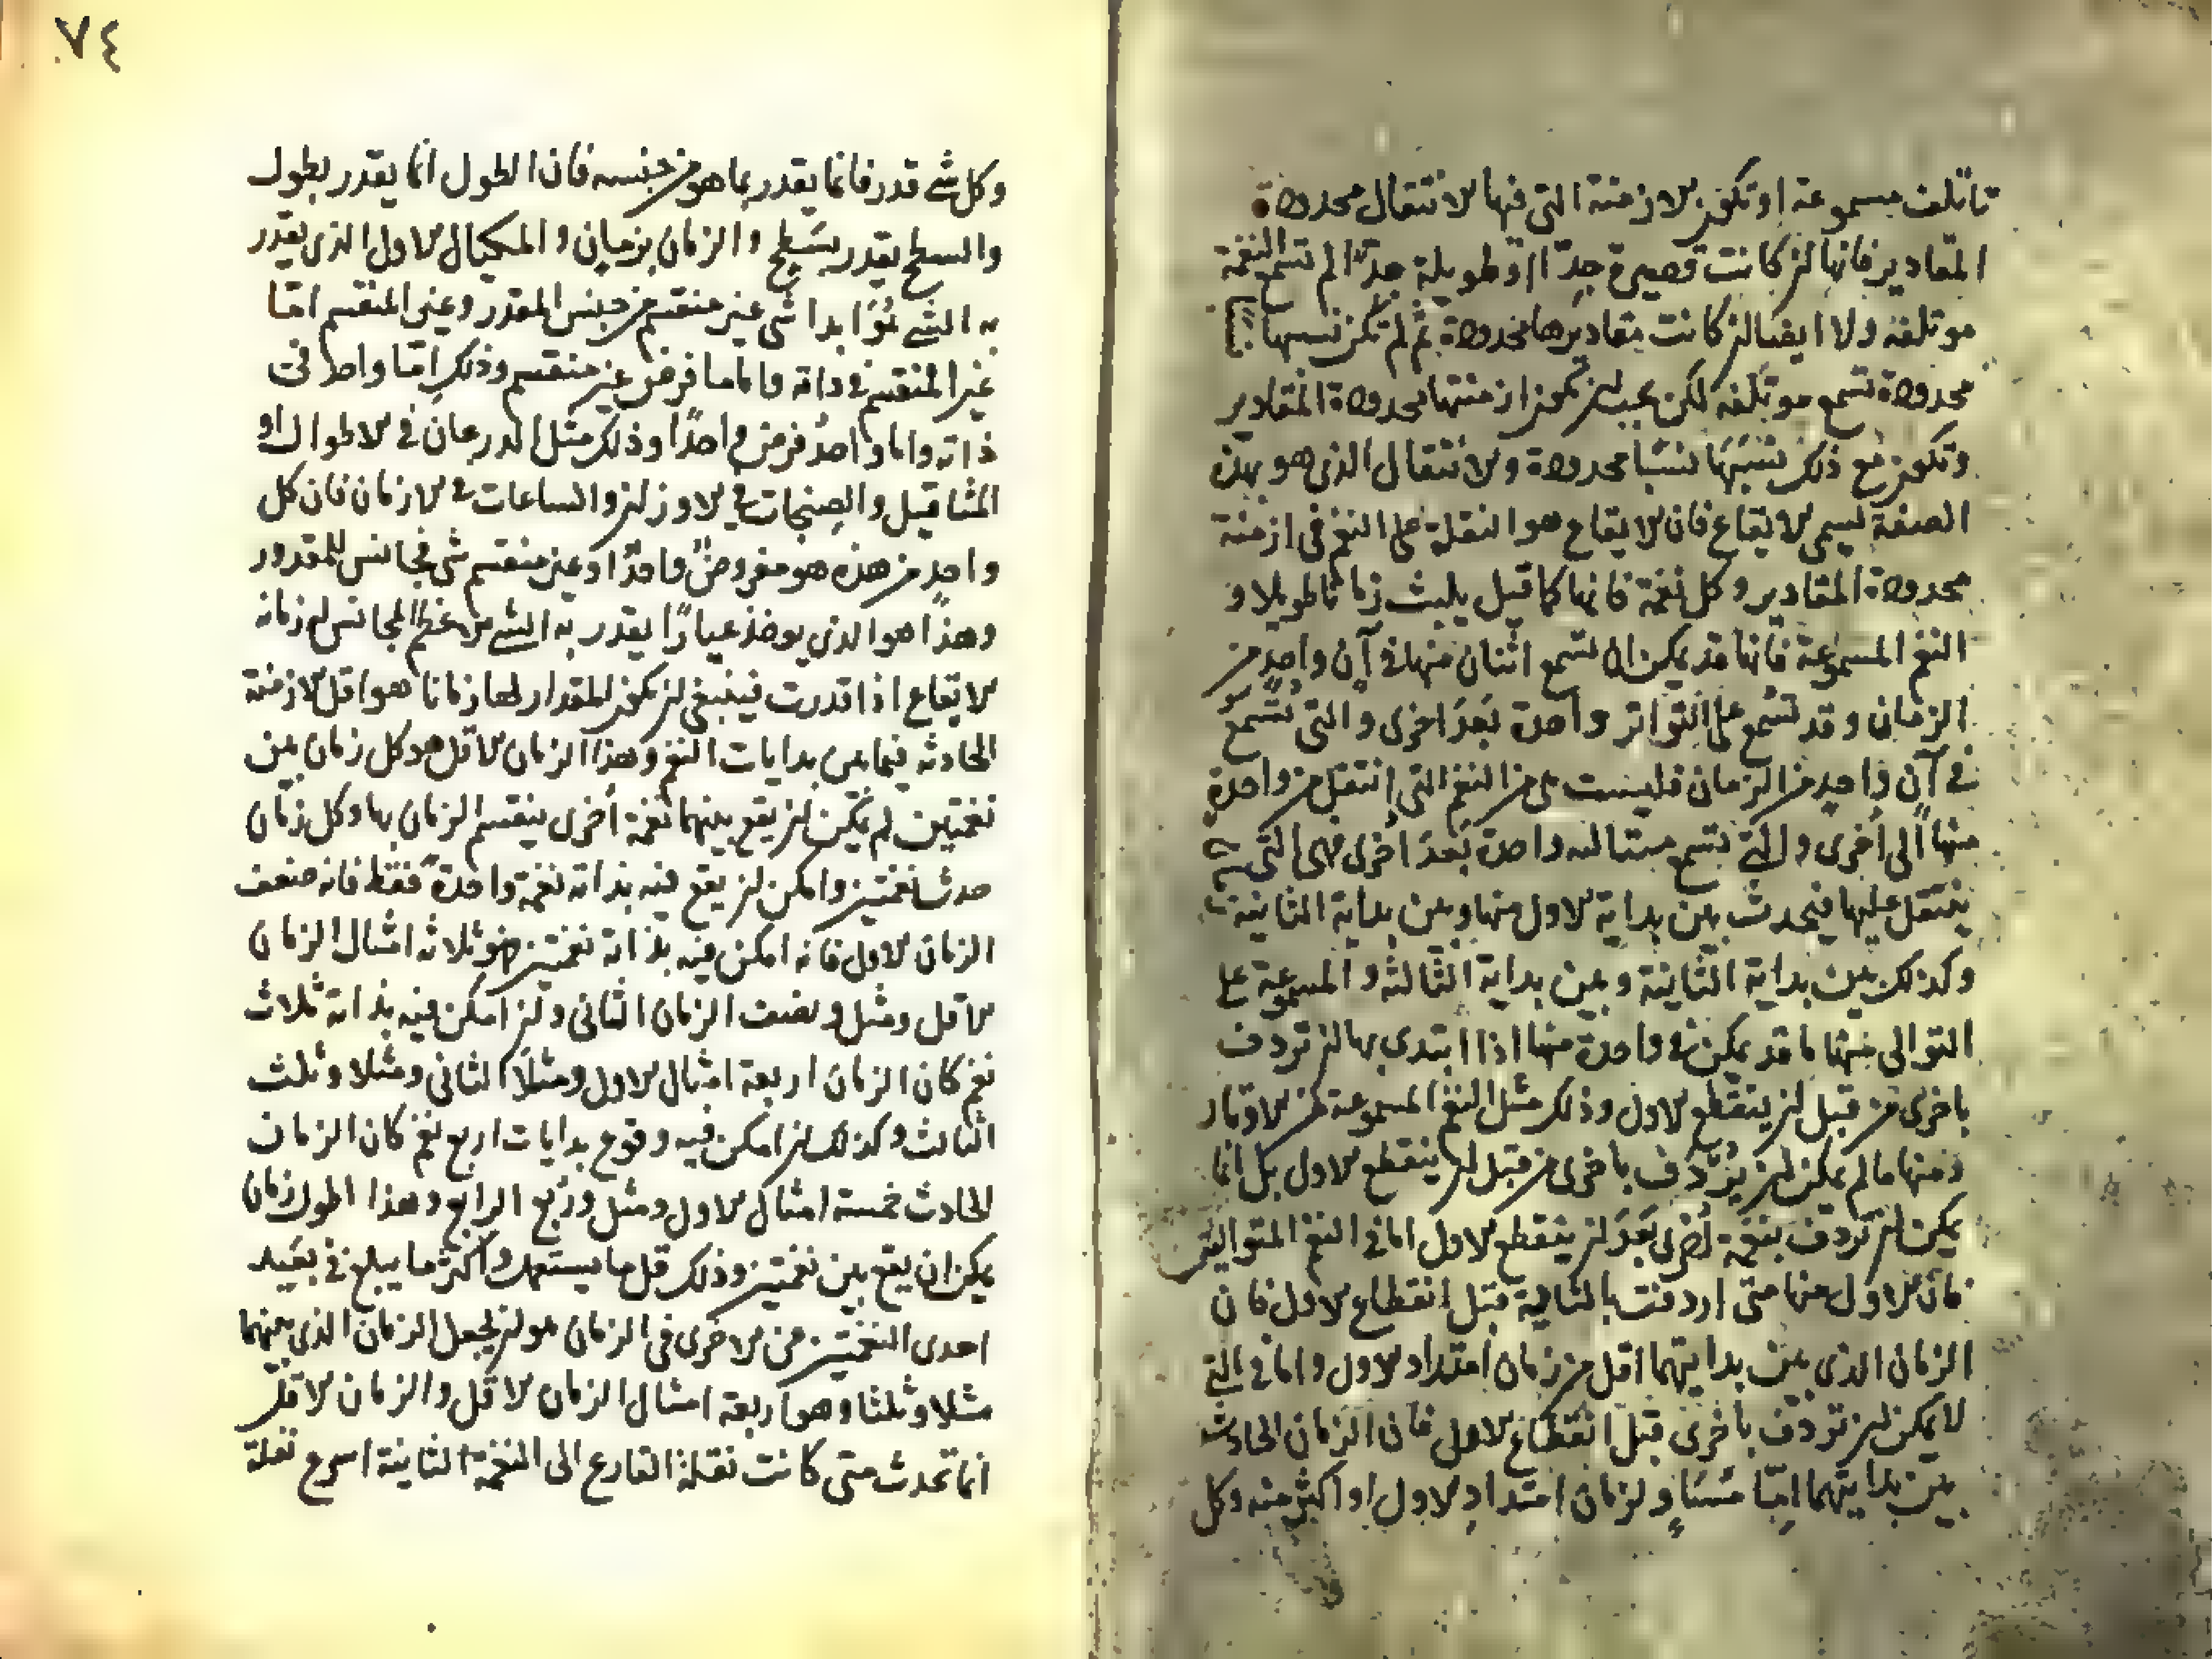 تاتلف مسموعة او تكون الازمنة التى فيها الانتقال محدودة
المقادير فانها ان كانت قصيرة جدّا او طويلة جدّا لم تسمع النغمة
موتلفة ولا ايضا ان كانت مقاديرها محدودة ثم لم تكن نسبها
محدودة تسمع موتلفة لكن يجب ان تكون ازمنتها محدودة المقادير
وتكون مع ذلك نسبها نسبا محدودة والانتقال الذى هو بهذه
الصفة يسمى الايقاع فان الايقاع هو النقلة على النغم فى ازمنة
محدودة المقادير وكل نغمة فانها كما قيل يلبث زمانا طويلا و
النغم المسموعة فانها قد يمكن ان تسمع اثنان منها فى آن واحد من
الزمان وقد تسمع على التواتر واحدة بعد اخرى والتى تسمع
فى آن واحد من الزمان فليست هى من النغم التى انتقل من واحدة
منها الى اخرى والتى تسمع متتالية واحدة بعد اخرى فهى التى
ينتقل عليها فيحدث بين بداية الاول منها وبين بداية الثانية
وكذلك بين بداية الثانية وبين بداية الثالثة والمسموعة على
التوالى منها ما قد يمكن فى واحدة منها اذا ابتدى بها ان تردف
باخرى من قبل ان ينقطع الاول وذلك مثل النغم المسموعة من الاوتار
ومنها ما لم يمكن ان يردف باخرى من قبل ان ينقطع الاول بل انما
يمكن ان تردف بنغمة اخرى بعد ان ينقطع الاول اما فى النغم المتوالية
فان الاول منها متى اردفت بالثانية قبل انقطاع الاول فان
الزمان الذى بين بدايتهما اقل من زمان امتداد الاول واما فى التى
لا يمكن ان تردف باخرى قبل انقطاع الاول فان الزمان الحادث
بين بدايتهما امّا مساو لزمان امتداد الاول او اكثر منه وكل
٧٤
وكل شى قدر فانما يقدر بما هو من جنسه فان الطول انما يقدر بطول
والسطح يقدر بسطح والزمان بزمان والمكيال الاول الذى يقدر
به الشى هو ابدا شى غير منقسم من جنس المقدر وغير المنقسم امّا
غير المنقسم فى ذاته واما ما فرض غير منقسم وذلك امّا واحد فى
ذاته واما واحد فرض واحدا وذلك مثل الدرعان فى الاطوال او
المثاقيل والصنجات فى الاوزان والساعات فى الازمان فان كل
واحد من هذه هو مفروض واحدا وغير منقسم شى مجانس للمقدور
وهذا هو الذى يوخذ عيارا يقدر به الشى الاعظم المجانس له زمانه
الايقاع اذا قدرت فينبغى ان يكون المقدار لها زمانا هو اقل الازمنة
الحادثة فيما بين بدايات النغم وهذا الزمان الاقل هو كل زمان بين
نغمتين لم يمكن ان يقع بينهما نغمة اخرى ينقسم الزمان بها وكل زمان
حدث نغمتين وامكن ان يقع فيه بذاته نغمة واحدة فقط فانه ضعف
الزمان الاول فانه امكن فيه بذاته نغمتين فهو ثلاثة امثال الزمان
الاقل ومثل ونصف الزمان الثانى وان امكن فيه بذاته ثلاث
نغم كان الزمان اربعة امثال الاول ومثلا الثانى ومثلا وثلث
الثالث وكذلك ان امكن فيه وقوع بدايات اربع نغم كان الزمان
الحادث خمسة امثال الاول ومثل وربع الرابع وهذا اطول زمان
يمكن ان يقع بين نغمتين وذلك قل ما يستعمل واكثر ما يبلغ فى بعيد
احدى النغمتين من الاخرى فى الزمان هو ان يجعل الزمان الذى بينهما
مثلا وثلثا وهو اربعة امثال الزمان الاقل والزمان الاقل
انما تحدث متى كانت نقلة القارع الى النغمة الثانية اسرع نقلة